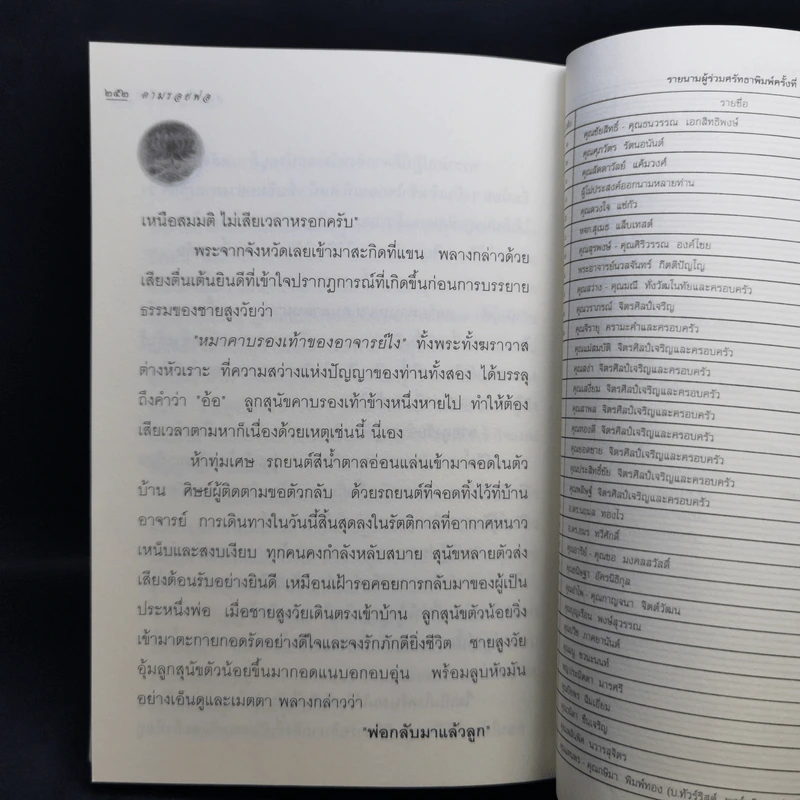 ๒๕๒ ตามรอยพ่อ
เหนือสมมติ ไม่เสียเวลาหรอกครับ"
พระจากจังหวัดเลยเข้ามาสะกิดที่แขน พลางกล่าวด้วย
เสียงตื่นเต้นยินดีที่เข้าใจปรากฏการณ์ที่เกิดขึ้นก่อนการบรรยาย
ธรรมของชายสูงวัยว่า
"หมาคาบรองเท้าของอาจารย์ไง" ทั้งพระทั้งฆราวาส
ต่างหัวเราะ ที่ความสว่างแห่งปัญญาของท่านทั้งสอง ได้บรรลุ
ถึงคำว่า "อ้อ" ลูกสุนัขคาบรองเท้าข้างหนึ่งหายไป ทำให้ต้อง
เสียเวลาตามหาก็เนื่องด้วยเหตุเช่นนี้ นี่เอง
ห้าทุ่มเศษ รถยนต์สีน้ำตาลอ่อนแล่นเข้ามาจอดในตัว
บ้าน ศิษย์ผู้ติดตามขอตัวกลับ ด้วยรถยนต์ที่จอดทิ้งไว้ที่บ้าน
อาจารย์ การเดินทางในวันนี้สิ้นสุดลงในรัตติกาลที่อากาศหนาว
เหน็บและสงบเงียบ ทุกคนคงกำลังหลับสบาย สุนัขหลายตัวส่ง
เสียงต้อนรับอย่างยินดี เหมือนเฝ้ารอคอยการกลับมาของผู้เป็น
ประหนึ่งพ่อ เมื่อชายสูงวัยเดินตรงเข้าบ้าน ลูกสุนัขตัวน้อยวิ่ง
เข้ามาตะกายกอดรัดอย่างดีใจและจงรักภักดียิ่งชีวิต ชายสูงวัย
อุ้มลูกสุนัขตัวน้อยขึ้นมากอดแนบอกอบอุ่น พร้อมลูบหัวมัน
อย่างเอ็นดูและเมตตา พลางกล่าวว่า
"พ่อกลับมาแล้วลูก"
รายนามผู้ร่วมศรัทธาพิมพ์ครั้งที่
รายชื่อ
คุณชัยสิทธิ์ - คุณธนวรรณ เอกสิทธิพงษ์
คุณศุภวัตร รัตนอนันต์
คุณลัดดาวัลย์ แค้มวงศ์
ผู้ไม่ประสงค์ออกนามหลายท่าน
คุณดวงใจ แซ่กัว
หจก.สุเมธ แล็บเทสต์
คุณสุรพงษ์ - คุณศิริวรรณ องค์ไชย
พระอาจารย์นวลจันทร์ กิตติปัญโญ
คุณสว่าง - คุณมณี ทั่งวัฒโนทัยและครอบครัว
คุณวราภรณ์ จิตรศิลป์เจริญ
คุณจิรายุ ครามะคำและครอบครัว
คุณแม่สมบัติ จิตรศิลป์เจริญและครอบครัว
คุณสง่า จิตรศิลป์เจริญและครอบครัว
คุณเสงี่ยม จิตรศิลป์เจริญและครอบครัว
คุณสาพล จิตรศิลป์เจริญและครอบครัว
คุณทองดี จิตรศิลป์เจริญและครอบครัว
คุณยอดชาย จิตรศิลป์เจริญและครอบครัว
คุณประสิทธิ์ชัย จิตรศิลป์เจริญและครอบครัว
คุณพสิษฐ์ จิตรศิลป์เจริญและครอบครัว
ทองไว
ทวีศักดิ์
มงคลสวัสดิ์
อัครนิธิกุล
คุณกาญจนา จิตต์วัฒน
พงษ์สุวรรณ
ภาคยานันต์
ชวนะนนท์
มารศรี
นิ่มเยี่ยม
ยืนเจริญ
นวารสุจิตร
คุณกษิมา พิมพ์ทอง (บ.ทัวร์ริสต์